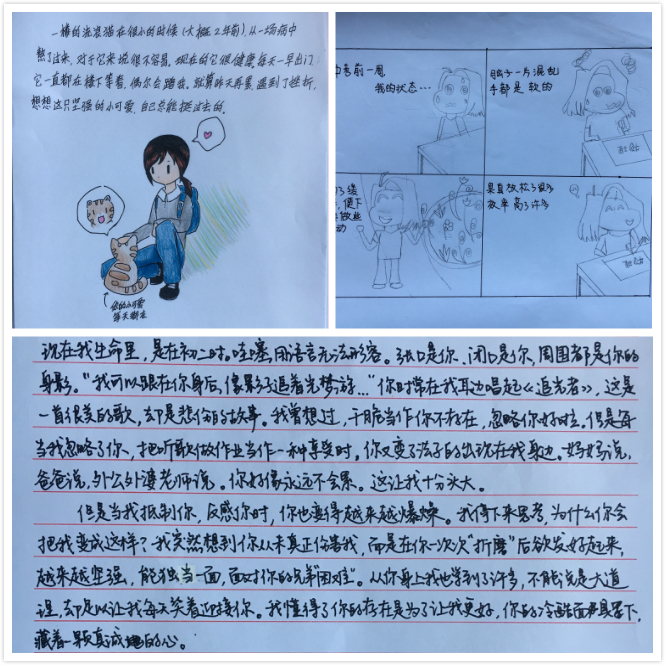 一楼的流浪猫在很小的时候（大概2年前）从一场病中
熬了过来，对于它来说很不容易。现在的它很健康每天一早出门
它一直都在楼下等着，偶尔会蹭我。就算昨天再累，遇到了挫折，
想想这只坚强的小可爱，自己总能挺过去的。
你的小可爱
等天脚本
中考前一周
我的状态…
脑子一片混乱
手都是软的
了缓
便下
做些
动
果真放松了很多
效率高了许多
现在我生命里，是在初二时。哇塞，用语言无法形容。张口是你、闭口是你，周围都是你的
身影。"我可以跟在你身后，像影子追着光梦游…"你时常在我耳边唱起《追光者》，这是
一首很美的歌，却是悲伤的故事。我曾想过，干脆当作你不存在，忽略你好啦。但是每
当我忽略了你，把听歌做作业当作一种享受时。你又变了法子的出现在我身边。妈妈说，
爸爸说，外公外婆老师说。你好像永远不会累。这让我十分头大。
但是当我抵制你，反感你时，你也变得越来越爆燥。我停下来思考，为什么你会
把我变成这样？我突然想到你从未真正伤害我，而是在你一次次"折磨"后欲发好起来，
越来越坚强，能独当一面，面对你的兄弟"困难"。从你身上我也学到了许多，不能说是大道
理，却足以让我每天笑着迎接你。我懂得了你的存在是为了让我更好，你的冷酷面具之下，
藏着一颗真诚地的心。